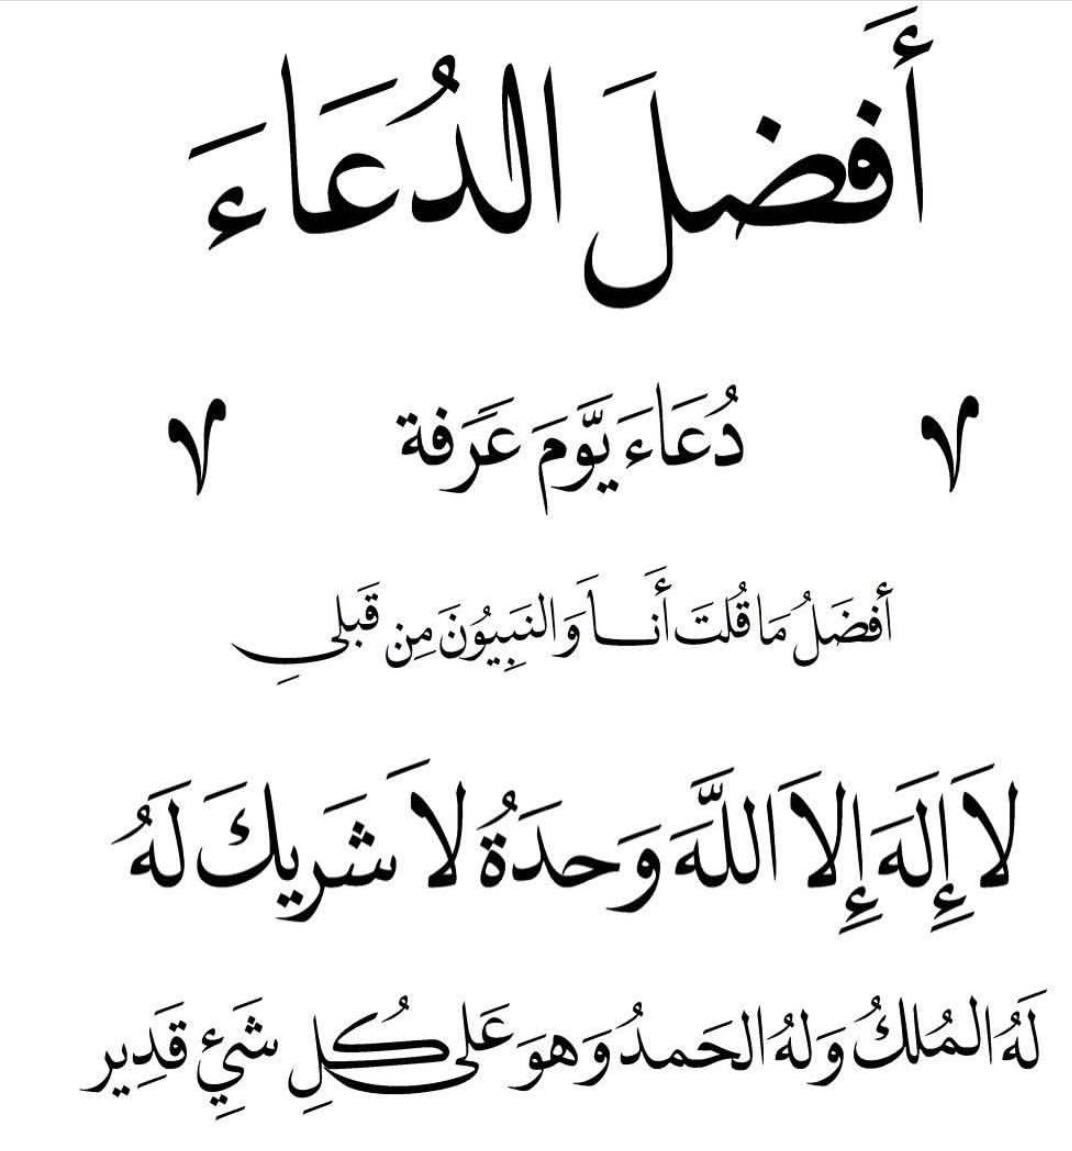 أَفضلَ الدُعَاءَ
دُعَاءَ يَّومَ عَرَفة
أفضَلُ مَا قُلتَ أَنَــاَ وَالنَبِيوُنَ مِن قَبلىِ
لاَ إِلَهَ إِلاَ اللَّهَ وَحدَةُ لاَ شَرِيكَ لَهُ
لَهُ المُلكُ وَلهُ الحَمدُ وَهوَ عَلى كُلِ شَيِءٍ قَدِير